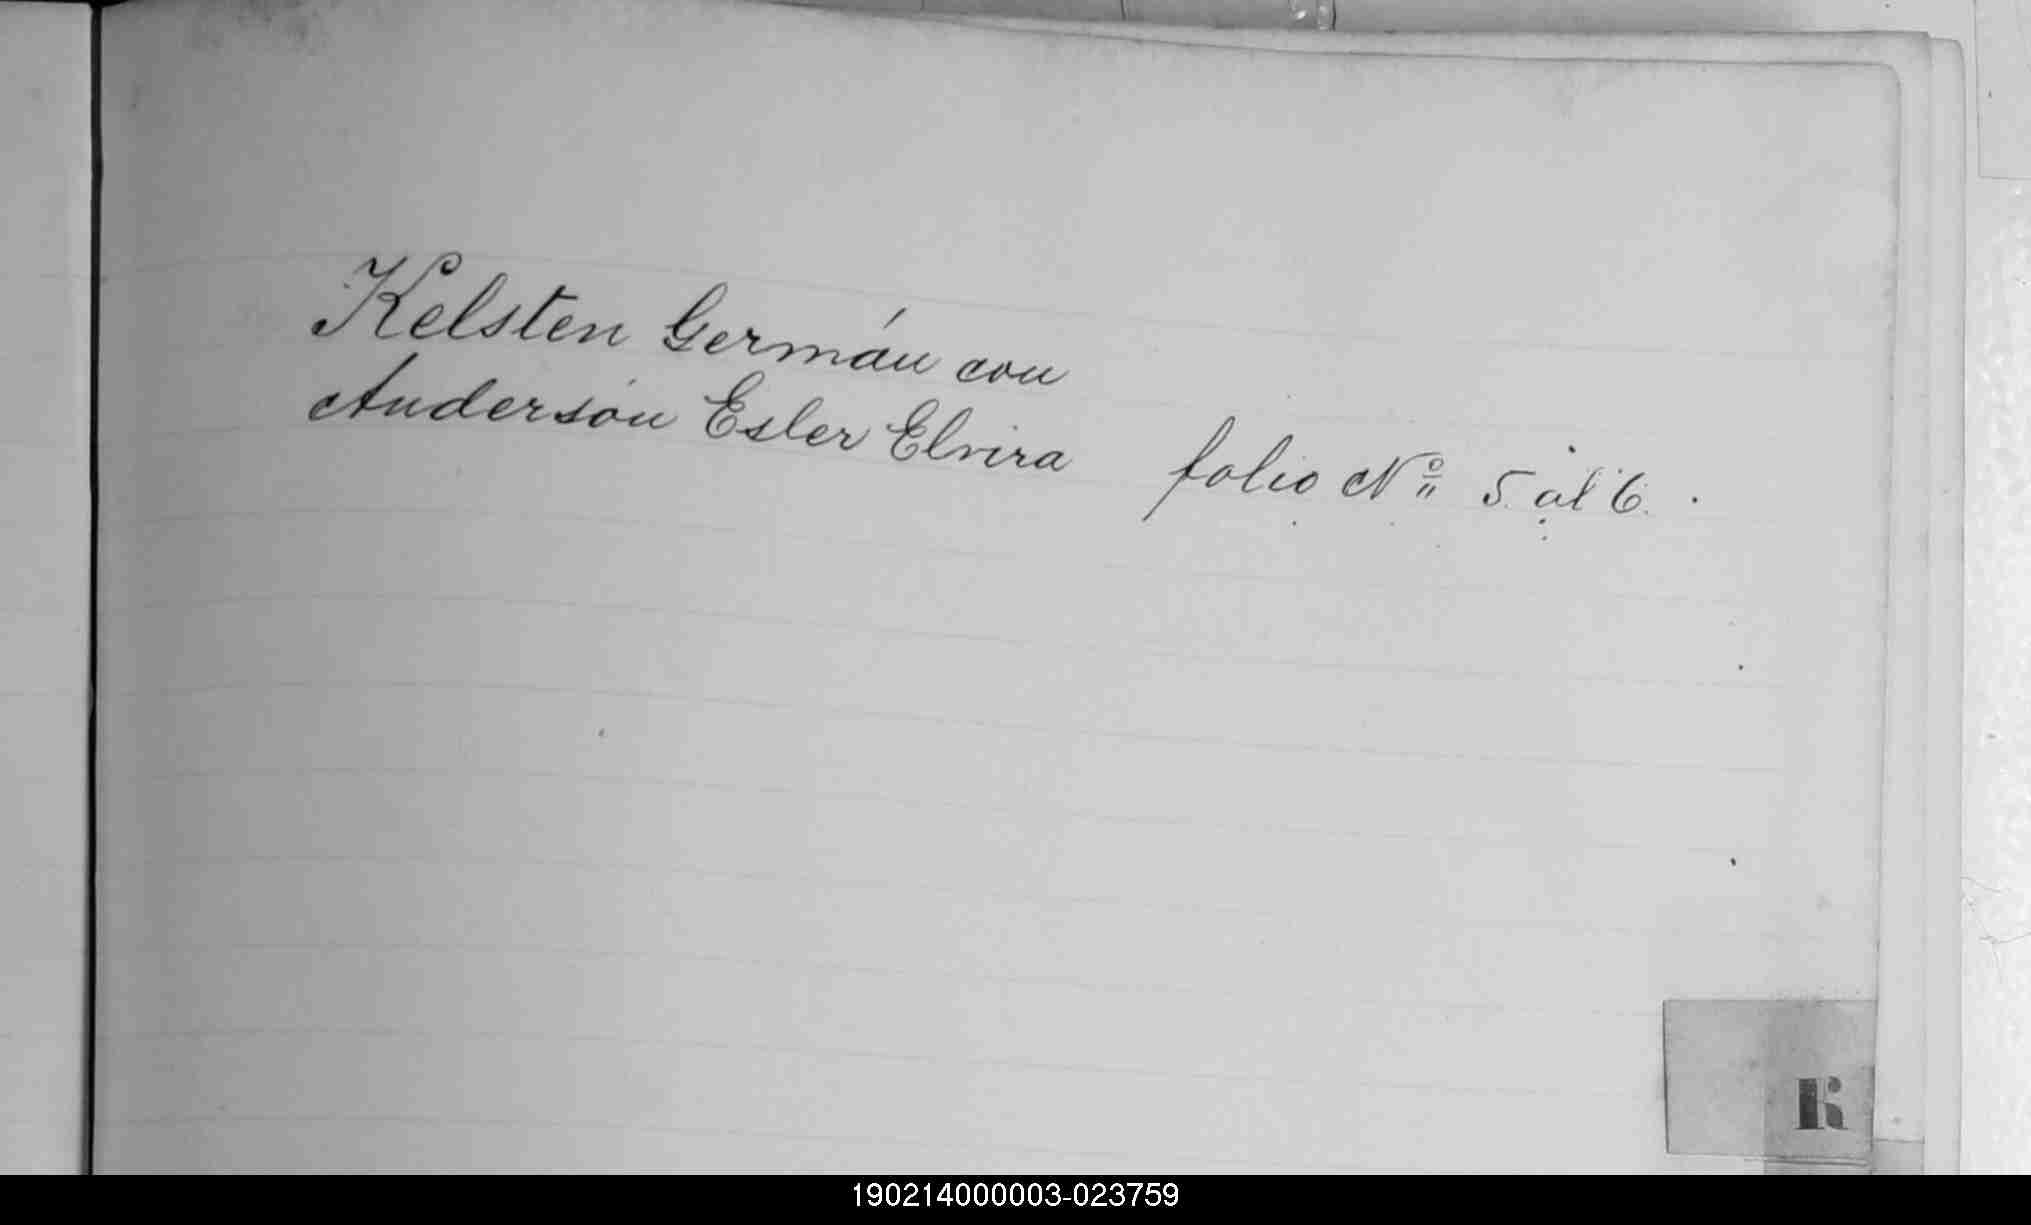 Kelsten Germán con
Anderson Esler Elvira folio Nº 5 al 6.
K
190214000003-023759